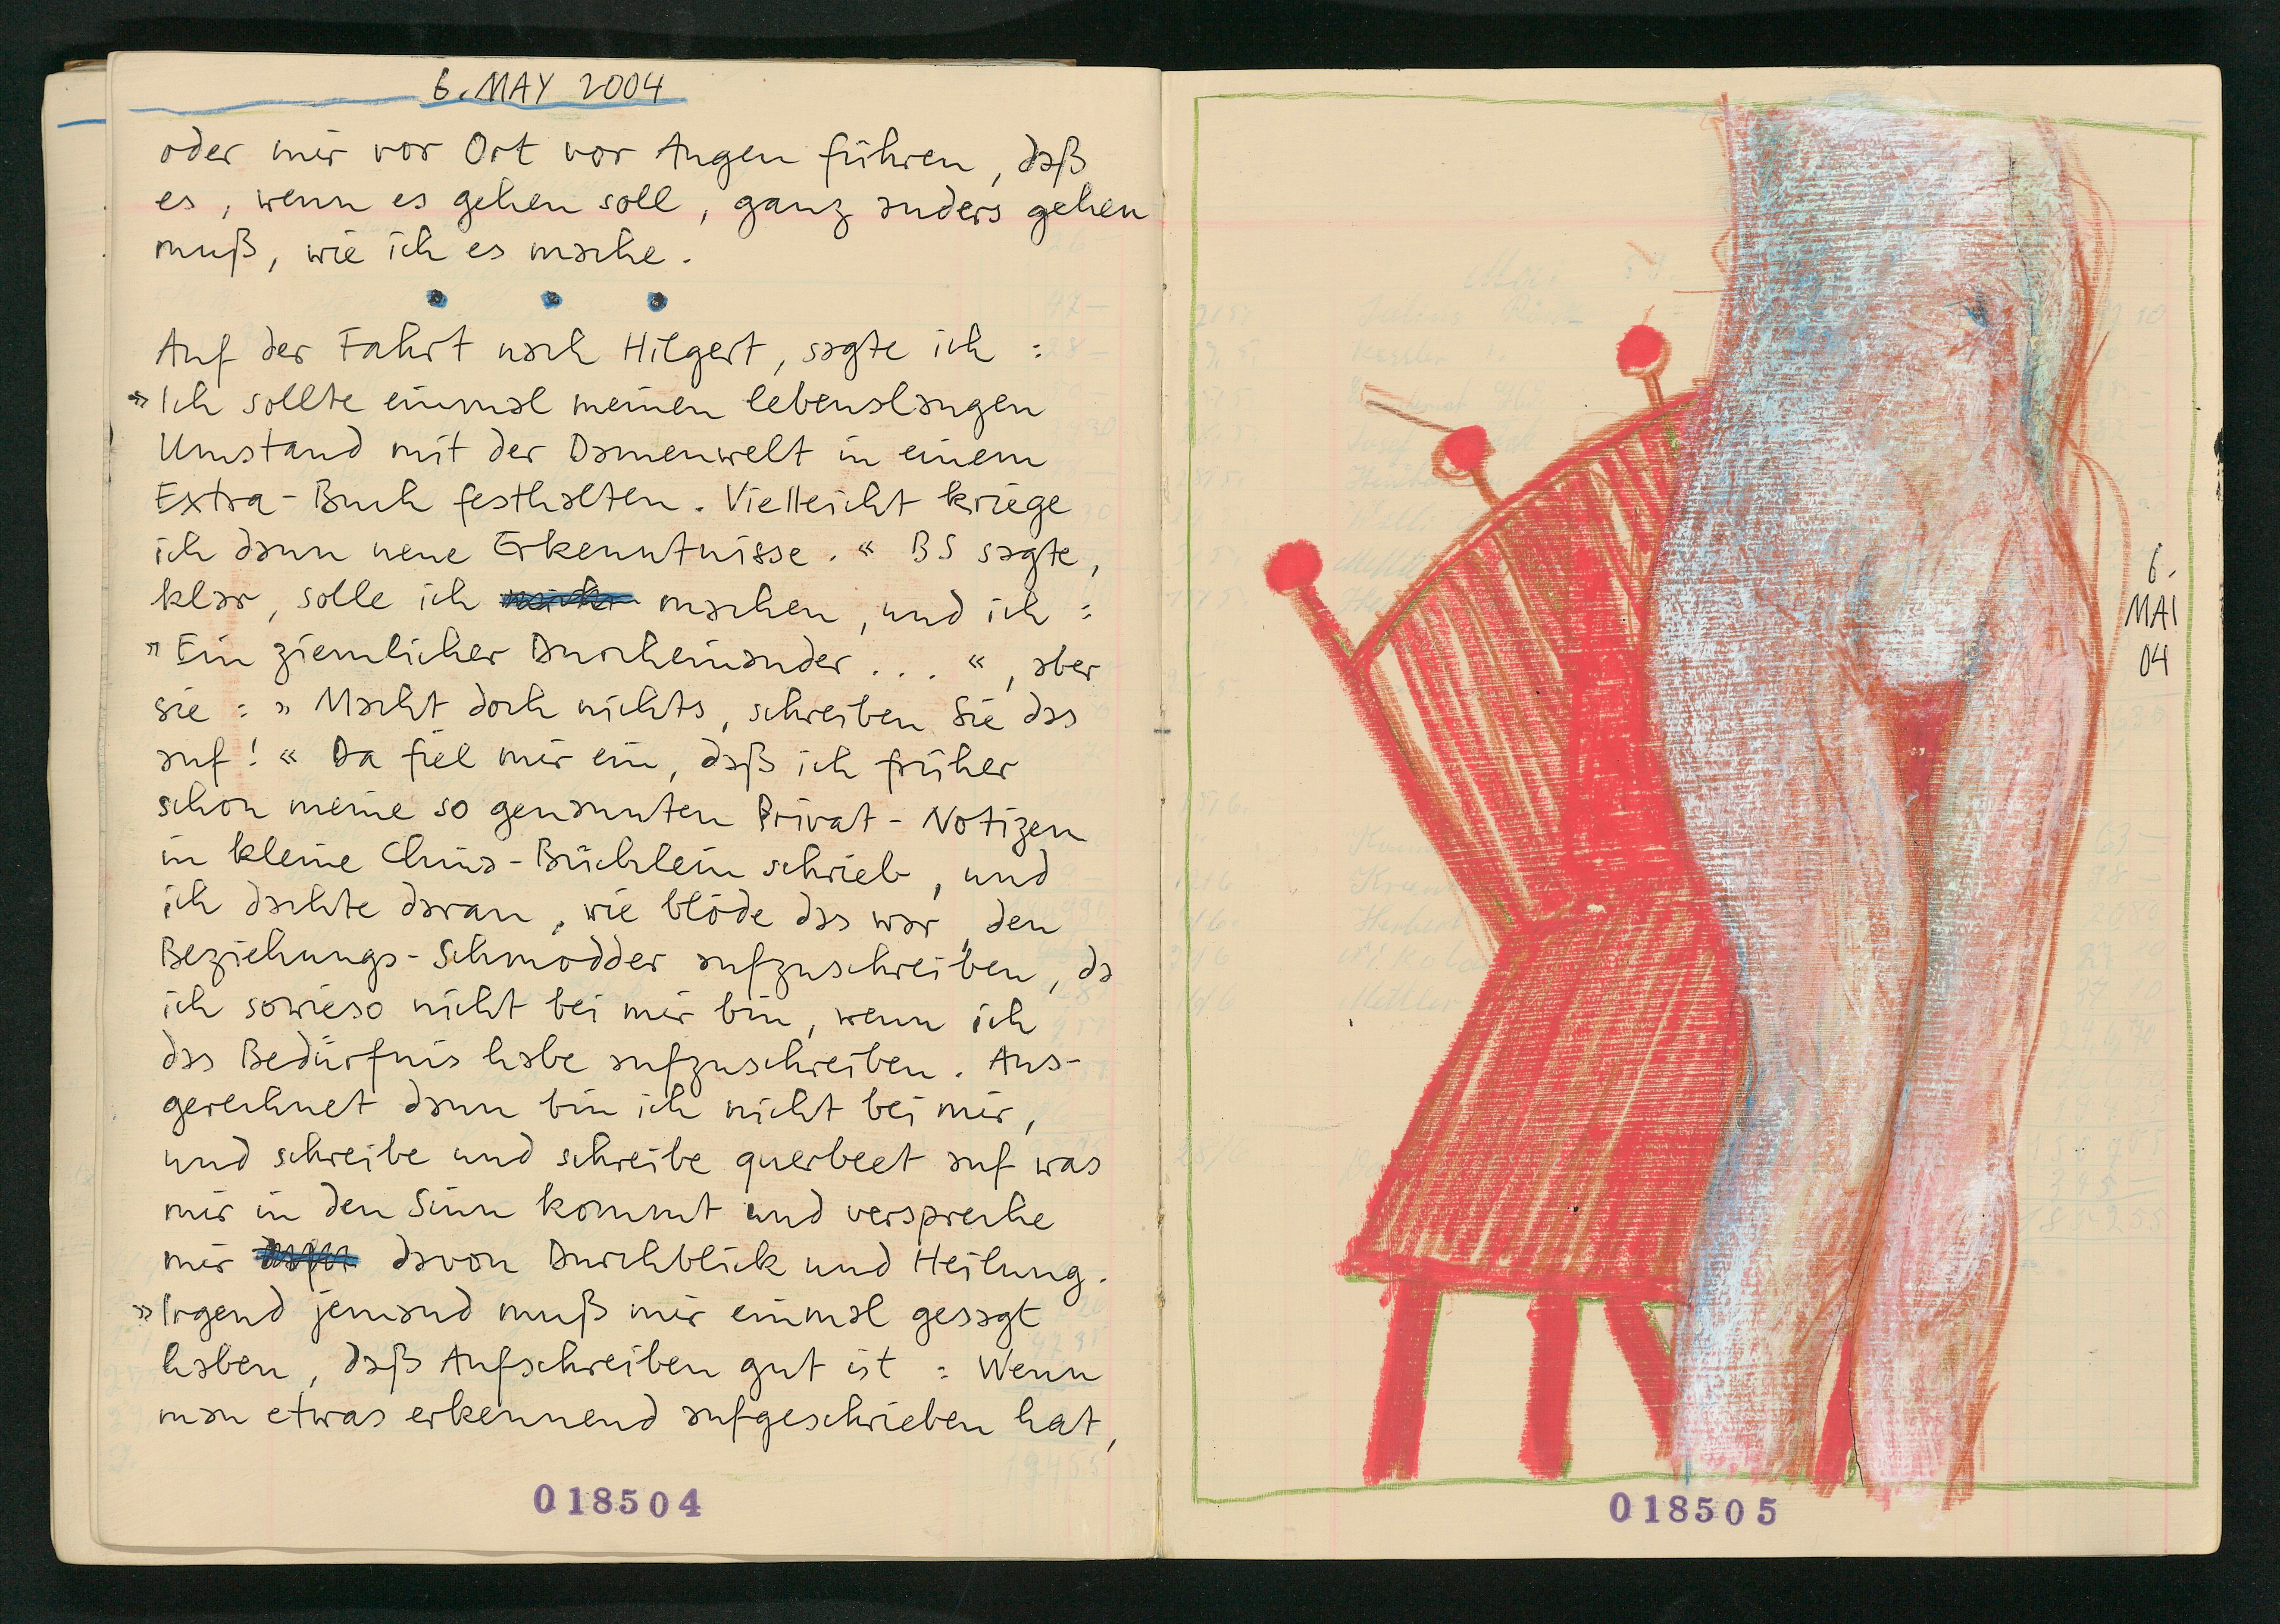 6. MAY 2004
oder mir vor Ort vor Augen führen, daß
es, wenn es gehen soll, ganz anders gehen
muß, wie ich es mache.
Auf der Fahrt nach Hilgert, sagte ich :
»Ich sollte einmal meinen lebenslangen
Umstand mit der Damenwelt in einem
Extra-Buch festhalten. Vielleicht kriege
ich dann neue Erkenntnisse.« BS sagte,
klar, solle ich machen, und ich :
»Ein ziemlicher Durcheinander...«, aber
sie : »Macht doch nichts, schreiben Sie das
auf!« Da fiel mir ein, daß ich früher
schon meine so genannten Privat-Notizen
in kleine China-Büchlein schrieb, und
ich dachte daran, wie blöde das war, den
Beziehungs-Schmodder aufzuschreiben, da
ich sowieso nicht bei mir bin, wenn ich
das Bedürfnis habe aufzuschreiben. Aus-
gerechnet dann bin ich nicht bei mir,
und schreibe und schreibe querbeet auf was
mir in den Sinn kommt und verspreche
mir davon Durchblick und Heilung.
»Irgend jemand muß mir einmal gesagt
haben, daß Aufschreiben gut ist : Wenn
man etwas erkennend aufgeschrieben hat,
018504
6.
MAI
04
018505